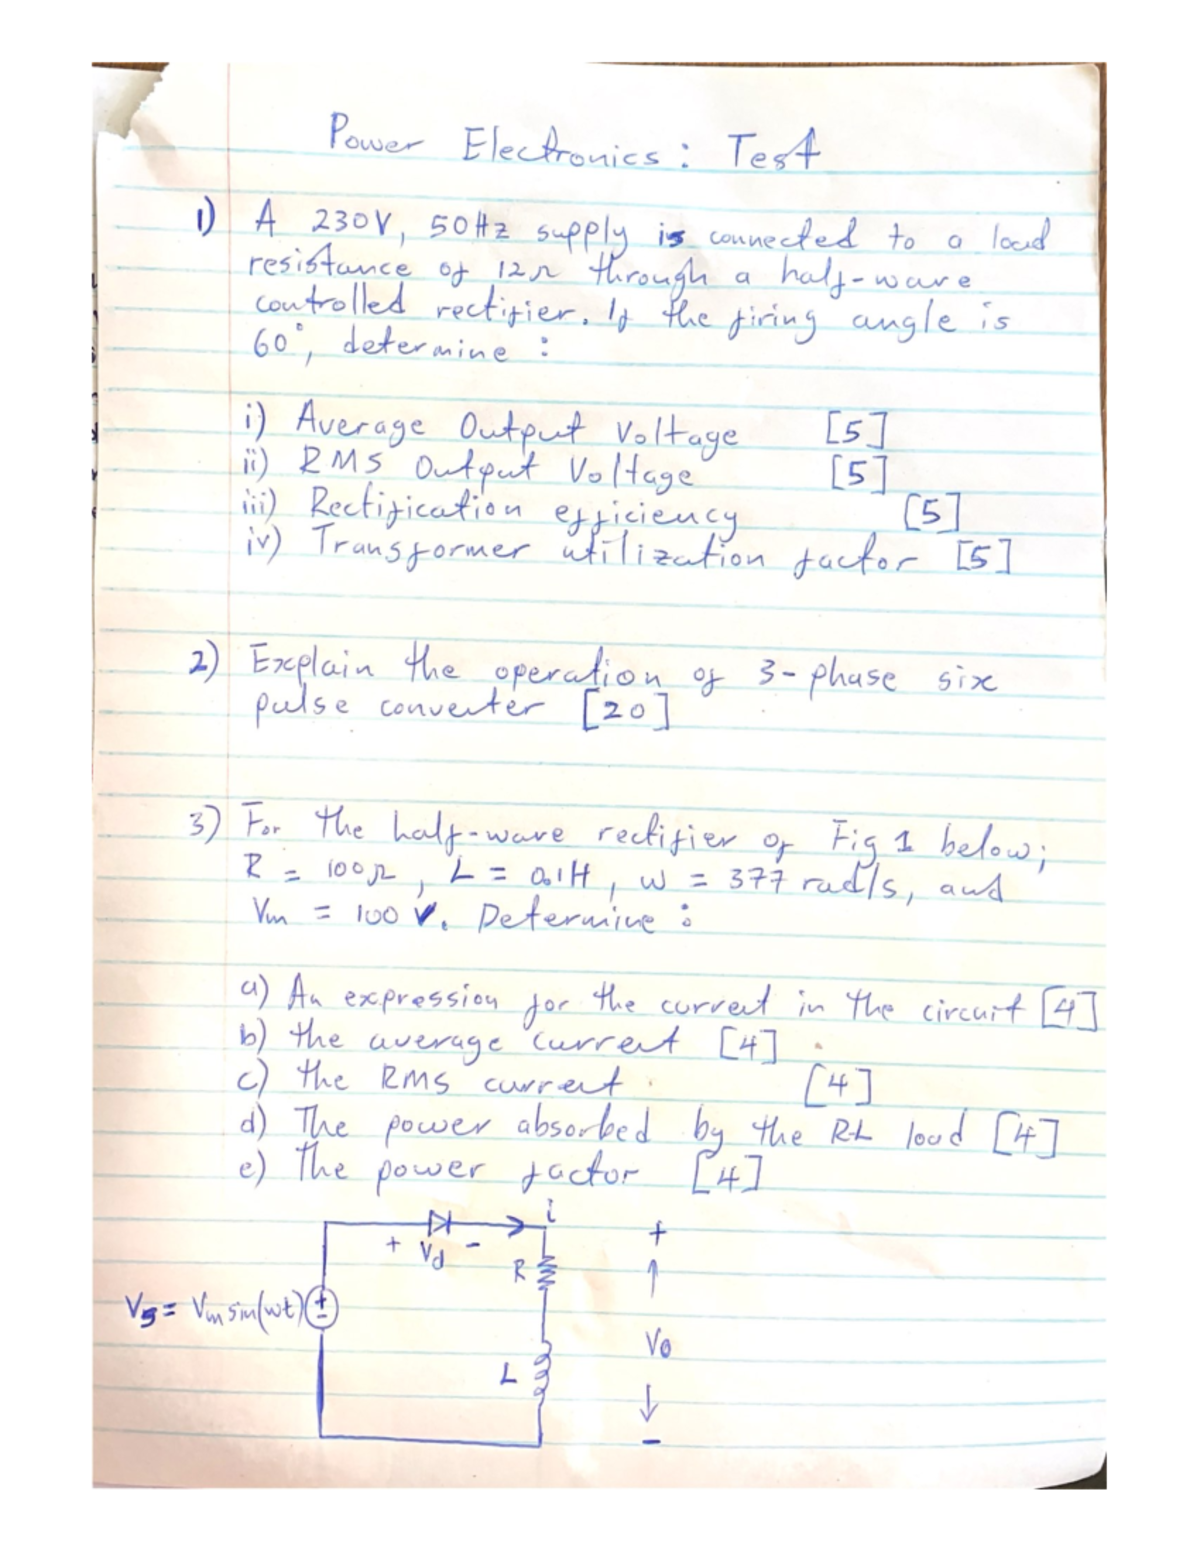 Power Electronics: Test
1) A 230V, 50Hz supply is connected to a load
resistance of 12Ω through a half-wave
controlled rectifier. If the firing angle is
60°, determine:
i) Average Output Voltage [5]
ii) RMS Output Voltage [5]
iii) Rectification efficiency [5]
iv) Transformer utilization factor [5]
2) Explain the operation of 3-phase six
pulse converter [20]
3) For the half-wave rectifier of Fig 1 below;
R = 100Ω, L = 0.1H, w = 377 rad/s, and
Vm = 100 V. Determine:
a) An expression for the current in the circuit [4]
b) the average current [4]
c) the RMS current. [4]
d) The power absorbed by the R-L load [4]
e) The power factor [4]
i
+ Vd -
+
R
Vs = Vm sin(wt)
+
-
Vo
L
-